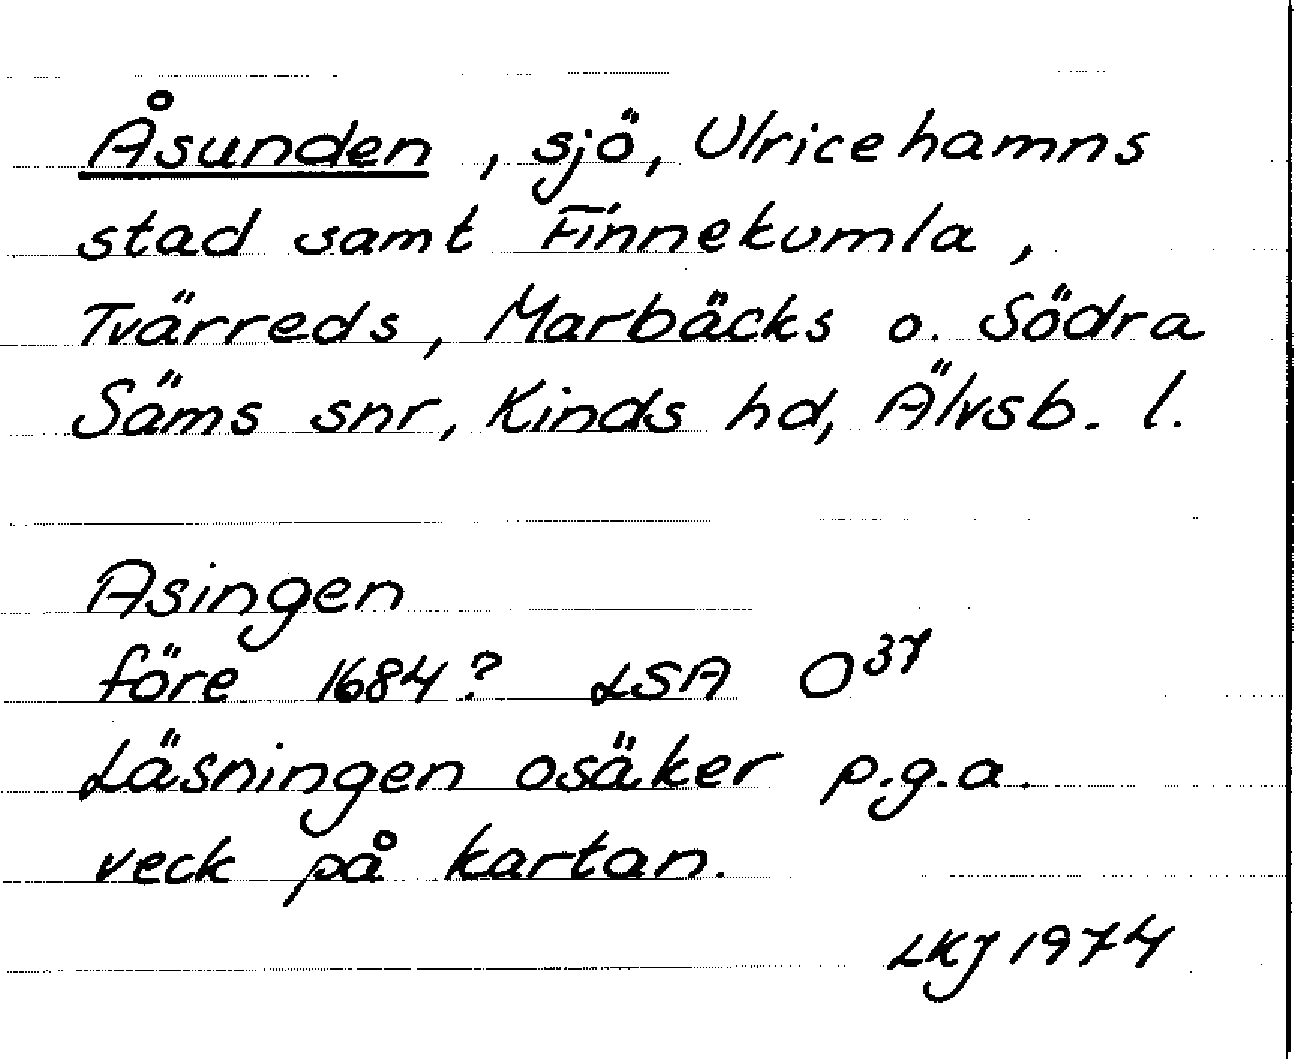 Åsunden, sjö, Ulricehamns
stad samt Finnekumla,
Tvärreds, Marbäcks o. Södra
Säms snr, Kinds hd, Älvsb. l.
Asingen
före 1684? LSA O³⁷
Läsningen osäker p.g.a.
veck på kartan.
LKJ 1974